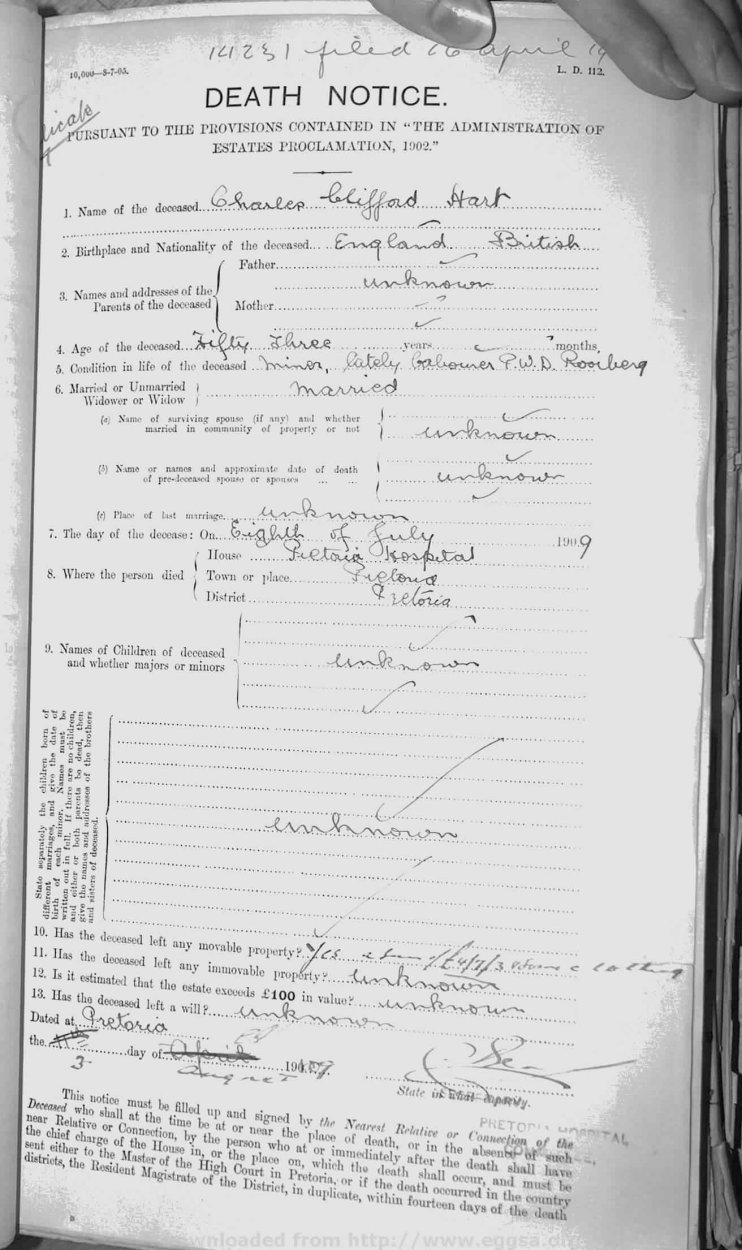 14231 filed 16 April 19
10,000—8-7-05.
L. D. 112.
DEATH NOTICE.
PURSUANT TO THE PROVISIONS CONTAINED IN "THE ADMINISTRATION OF
ESTATES PROCLAMATION, 1902."
1. Name of the deceased Charles Clifford Hart
2. Birthplace and Nationality of the deceased England British
3. Names and addresses of the Parents of the deceased
Father
unknown
Mother
4. Age of the deceased Fifty Three years months
5. Condition in life of the deceased Miner, lately Labourer P.W.D. Rooiberg
6. Married or Unmarried
Widower or Widow
married
(a) Name of surviving spouse (if any) and whether
married in community of property or not
unknown
(b) Name or names and approximate date of death
of pre-deceased spouse or spouses
unknown
(c) Place of last marriage unknown
7. The day of the decease: On Eighth of July 1909
8. Where the person died
House Pretoria Hospital
Town or place Pretoria
District Pretoria
9. Names of Children of deceased
and whether majors or minors
unknown
State separately the children born of
different marriages, and give the date of
birth of each minor. Names must be
written out in full. If there are no children,
and either or both parents be dead, then
give the names and addresses of the brothers
and sisters of deceased.
unknown
10. Has the deceased left any movable property? Yes a sum of £4/7/3 & some clothing
11. Has the deceased left any immovable property? unknown
12. Is it estimated that the estate exceeds £100 in value? unknown
13. Has the deceased left a will? unknown
Dated at Pretoria
the 3 day of April August 1909.
State in what capacity.
PRETORIA HOSPITAL
This notice must be filled up and signed by the Nearest Relative or Connection of the
Deceased who shall at the time be at or near the place of death, or in the absence of such
near Relative or Connection, by the person who at or immediately after the death shall have
the chief charge of the House in, or the place on, which the death shall occur, and must be
sent either to the Master of the High Court in Pretoria, or if the death occurred in the country
districts, the Resident Magistrate of the District, in duplicate, within fourteen days of the death
wnloaded from http://www.eggsa.o